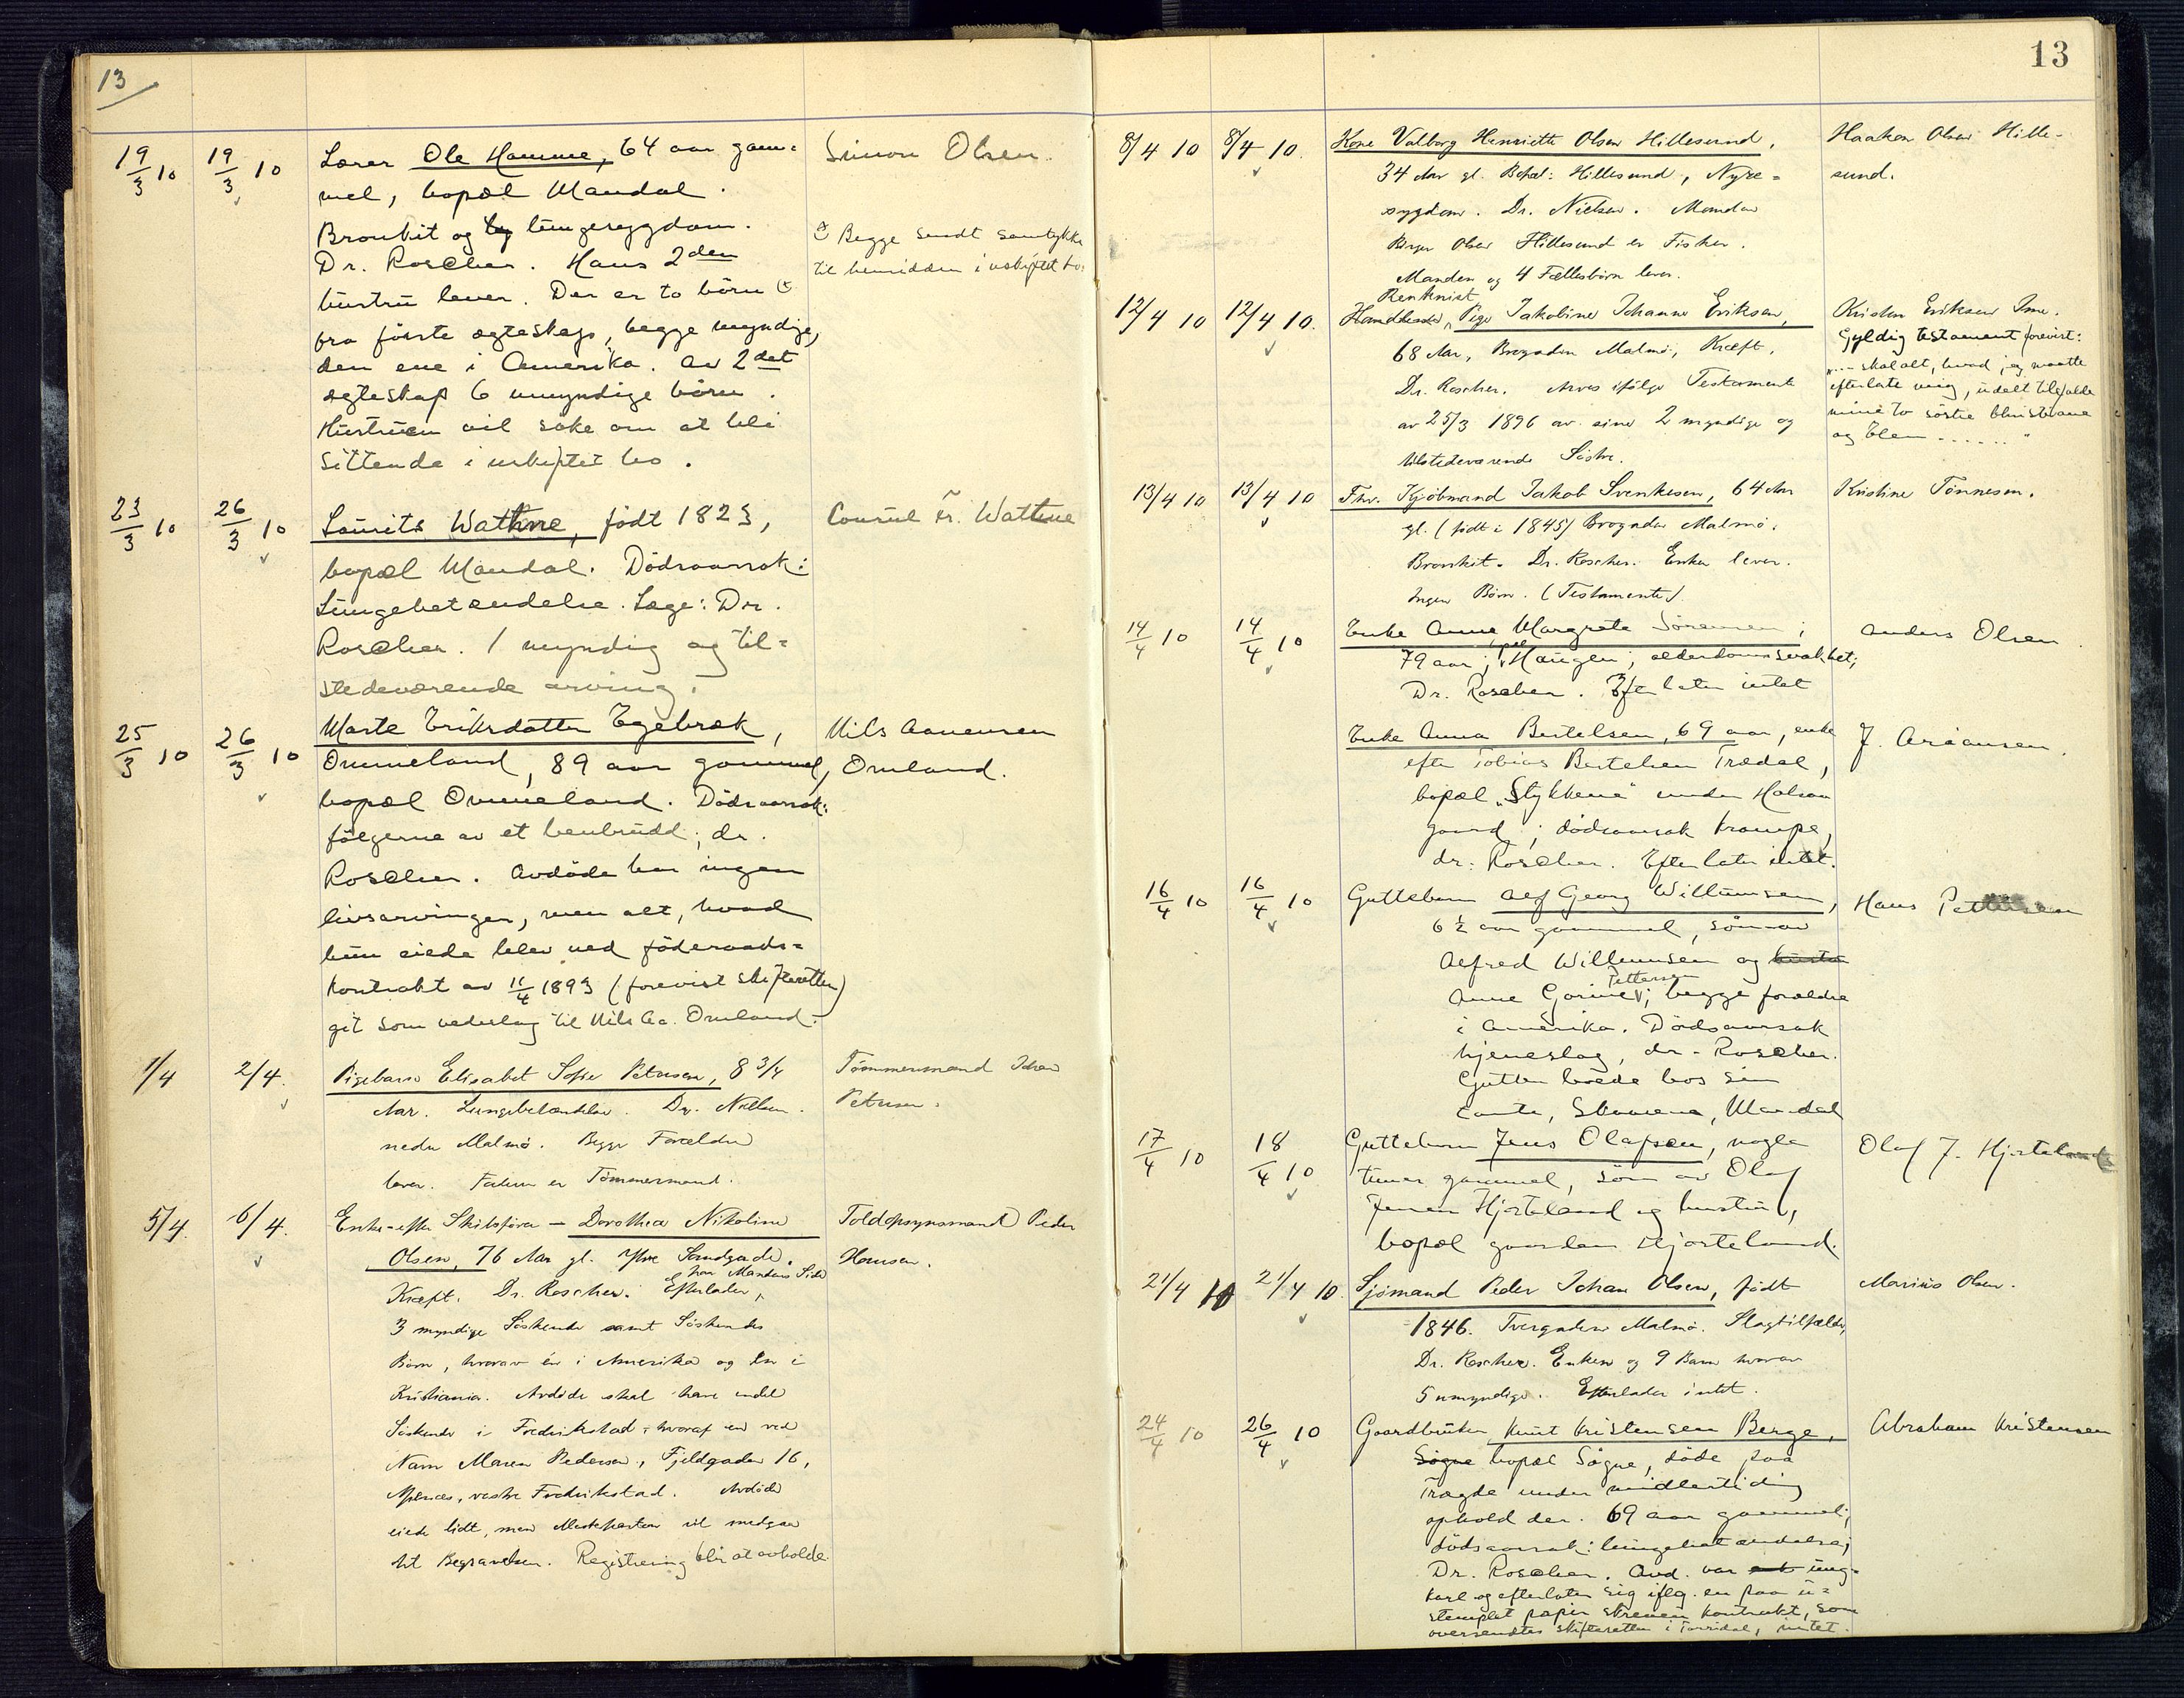 13
19/3 10
19/3 10
Lærer Ole Hamme, 64 aar gam=
mel, bopæl Mandal.
Bronkit og lungesygdom.
Dr. Roscher. Hans 2den
hustru lever. Der er to börn
fra förste egteskap, begge myndige,
den ene i Amerika. Av 2det
egteskap 6 umyndige börn.
Hustruen vil söke om at bli
sittende i uskiftet bo.
Simon Olsen.
Begge sendt samtykke
til hensidden i uskiftet bo.
23/3 10
26/3 10
Lauritz Wathne, födt 1823,
bopæl Mandal. Dödsaarsak:
Lungebetændelse. Læge: Dr.
Roscher. 1 myndig og til=
stedeværende arving.
Consul Fr. Wattne
25/3 10
26/3 10
Marte Eriksdatter Egebræk,
Ommeland, 89 aar gammel,
bopæl Ommeland. Dödsaarsak:
fölgerne av et benbrudd; dr.
Roscher. Avdöde har ingen
livsarvinger, men alt, hvad
hun eiede blev ved föderaads=
kontrakt av 11/4 1893 (forevist skifteretten)
git som vederlag til Nils Aa. Omland.
Nils Aanensen
Omland.
1/4
2/4.
Pigebarn Elisabet Sofie Petersen, 8 3/4
Aar. Lungebetændelse. Dr. Nielsen.
nedre Malmö. Begge Forældre
lever. Faderen er Tömmermand.
Tömmermand Johan
Petersen.
5/4.
6/4.
Enke efter Skibsförer — Dorothea Nikoline
Olsen, 76 Aar gl. Övre Strandgade.
Kræft. Dr. Roscher. Efterlader,
paa Mandens Side
3 myndige Söskende samt Söskendes
Børn, hvorav én i Amerika og én i
Kristiania. Avdöde skal have endel
Söskende i Fredrikstad, hvoraf en ved
Navn Maren Pedersen, Fjeldgaden 16,
vestre Fredrikstad. Avdöde
eiede lidt, men Mesteparten vil medgaa
til Begravelsen. Registrering blir at avholde.
Toldopsynsmand Peder
Hansen.
13
8/4 10
8/4 10.
Kone Valborg Henriette Olsen Hillesund,
34 Aar gl. Bopæl: Hillesund, Nyre=
sygdom. Dr. Nielsen. Manden
Birger Olsen Hillesund er Fisker.
Manden og 4 Fællesbørn lever.
Haakon Olsen Hille-
sund.
12/4 10
12/4 10.
Rentenist
Pige Jakobine Johanne Eriksen,
68 Aar, Brogaden Malmö, Kræft.
Dr. Roscher. Arves ifölge Testamente
av 25/3 1896 av sine 2 myndige og
tilstedeværende Söstre.
Kristen Eriksen Ime.
Gyldig testament forevist:
"... skal alt, hvad jeg maatte
efterlate mig, udelt tilfalde
mine to söstre Christiane
og Elen ......"
13/4 10
13/4 10
Fhv. Kjöbmand Jakob Svenksen, 64 Aar
gl. (födt i 1845) Brogaden Malmö.
Bronkit. Dr. Roscher. Enken lever.
Ingen Børn. (Testamente).
Kristine Tönnesen.
14/4 10
14/4 10
Enke Anne Margrete Sörensen;
79 aar; Haugen; alderdomssvakhet;
Dr. Roscher. Efterlater intet
Anders Olsen
Enke Anna Bertelsen, 69 aar, enke
efter Tobias Bertelsen Trædal,
bopæl "Stykkene" under Halsaa
gaard; dödsaarsak krampe,
dr. Roscher. Efterlater intet.
J. Aråansen.
16/4 10
16/4 10
Guttebarn Alf Georg Willumsen,
6 1/2 aar gammel, sön av
Alfred Willumsen og hustru
Pettersen
Anne Gorine; begge forældre
i Amerika. Dödsaarsak
hjerneslag, dr. Roscher.
Gutten boede hos sin
tante, Mandal
Hans Pettersen
17/4 10
18/4 10
Guttebarn Jens Olafsen, nogle
timer gammel, sön av Olaf
Jensen Hjorteland og hustru,
bopæl gaarden Hjorteland.
Olaf J. Hjorteland
21/4 10
21/4 10.
Sjömand Peder Johan Olsen, födt
1846. Tvergaden Malmö. Slagtilfælde,
Dr. Roscher. Enken og 9 Barn hvorav
5 umyndige. Efterlader intet.
Marius Olsen.
24/4 10
26/4 10
Gaardbruker Knut Kristensen Berge,
Sögne bopæl Sögne, döde paa
Trægde under midlertidig
ophold der. 69 aar gammel;
dödsaarsak: lungebetændelse;
Dr. Roscher. Avd. var ung=
karl og efterlater sig iflg. en paa u=
stemplet papir skreven kontrakt, som
oversendtes skifteretten i Torridal, intet.
Abraham Kristensen